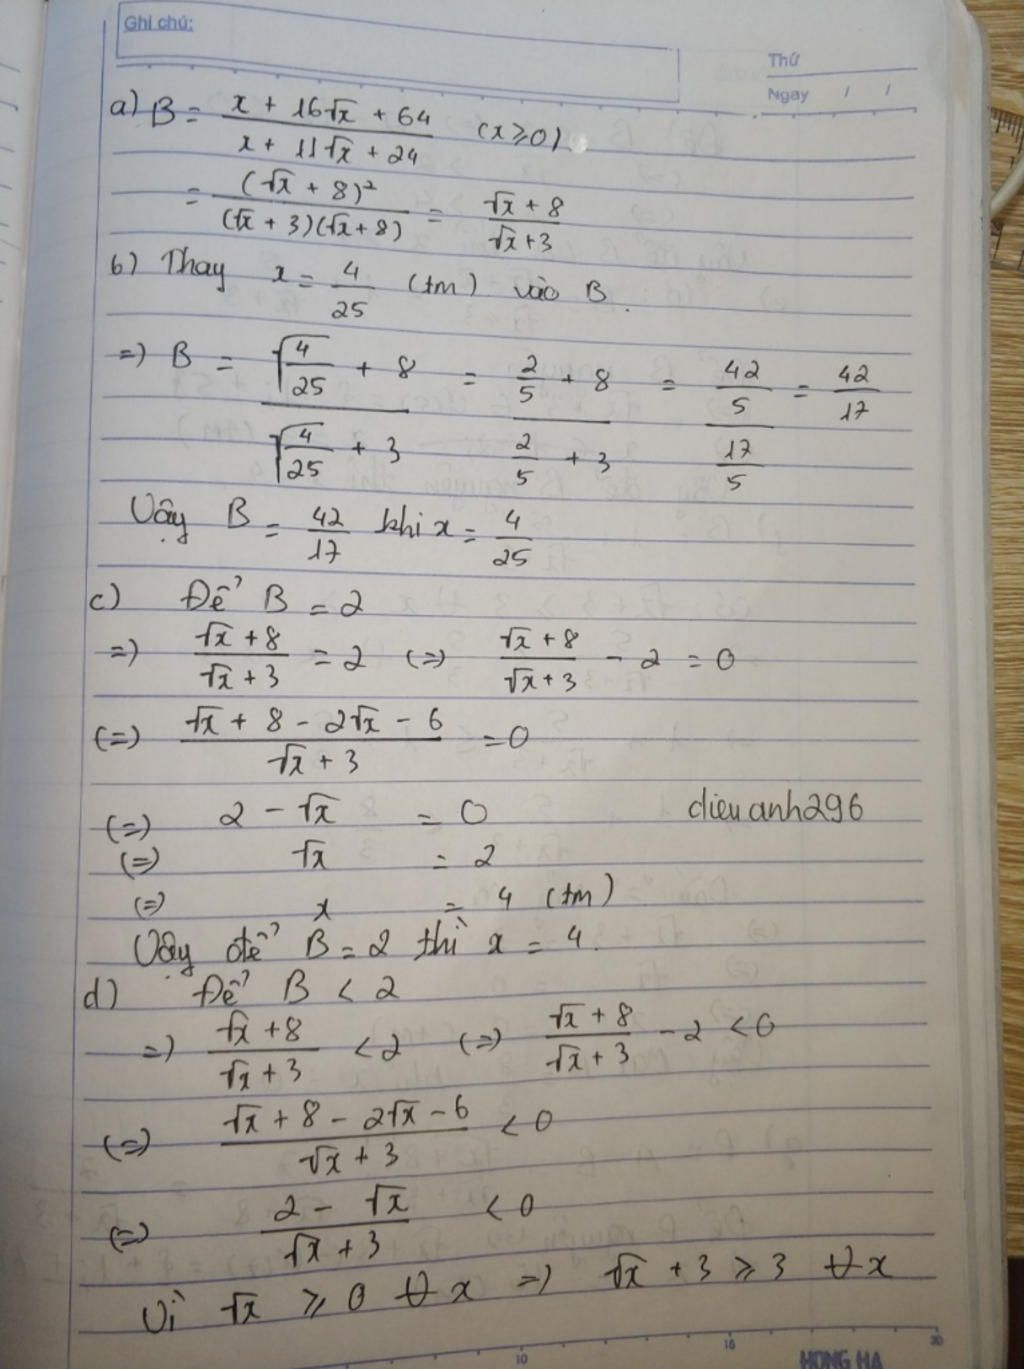 Ghi chú:
Thứ
Ngày / /
a) B = (x + 16√x + 64)/(x + 11√x + 24) (x ≥ 0)
= (√x + 8)²/((√x + 3)(√x + 8)) = (√x + 8)/(√x + 3)
b) Thay x = 4/25 (tm) vào B.
=> B = (√(4/25) + 8)/(√(4/25) + 3) = (2/5 + 8)/(2/5 + 3) = (42/5)/(17/5) = 42/17
Vậy B = 42/17 khi x = 4/25
c) Để B = 2
=> (√x + 8)/(√x + 3) = 2 (=) (√x + 8)/(√x + 3) - 2 = 0
(=) (√x + 8 - 2√x - 6)/(√x + 3) = 0
(=) 2 - √x = 0
dieuanh296
(=) √x = 2
(=) x = 4 (tm)
Vậy để B = 2 thì x = 4.
d) Để B < 2
=> (√x + 8)/(√x + 3) < 2 (=) (√x + 8)/(√x + 3) - 2 < 0
(=) (√x + 8 - 2√x - 6)/(√x + 3) < 0
(=) (2 - √x)/(√x + 3) < 0
Vì √x ≥ 0 ∀x => √x + 3 ≥ 3 ∀x
10 15 20
HONG HA